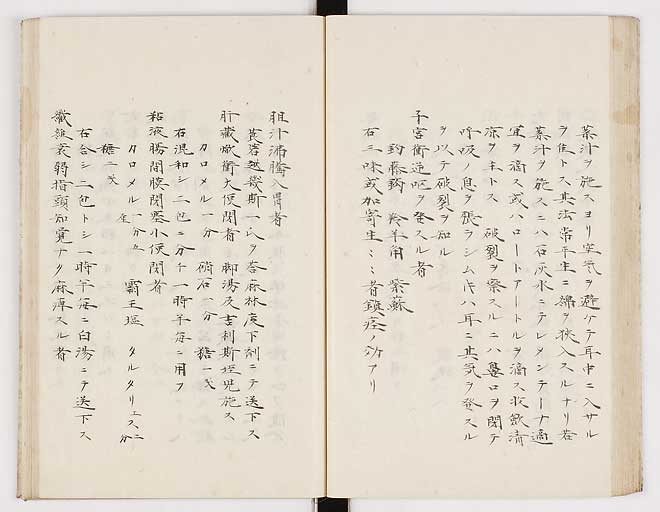 藥汁ヲ施スヨリ空氣ヲ避ケテ耳中ニ入サル
ヲ佳トス其法常平生ニ綿ヲ狹入スルナリ若
藥汁ヲ施スニハ石灰水ニテレメンテーナ適
宜ヲ滴ス或ハロートアートルヲ滴ス收歛清
凉ヲ主トス 破裂ヲ察スルニハ鼻口ヲ閉テ
呼吸ノ息ヲ張ラシム片ハ耳ニ其気ヲ發スル
ヲ以テ破裂ヲ知ル
子宮衝逆嘔ヲ發スル者
釣藤鈎 羚羊角 紫蘇
右三味或加寄生ミミ者鎮痙ノ効アリ
胆汁沸騰入胃者
莨菪越幾斯一氏ヲ荅麻林度下剤ニテ送下ス
肝藏衝大便閉者 脚湯及吉利斯埕児施ス
カロメル一分 硝石一分 糖一戔
右混和シ二包ニ分チ一時半毎ニ用ヲ
粘液腸間膜閉塞小便閉者
カロメル一分 覇王塩 タルタリエスニ分
糖二戔
右合シ二包トシ一時半毎ニ白湯ニテ送下ス
纖維衰弱指頭知覚ナク麻痺スル者